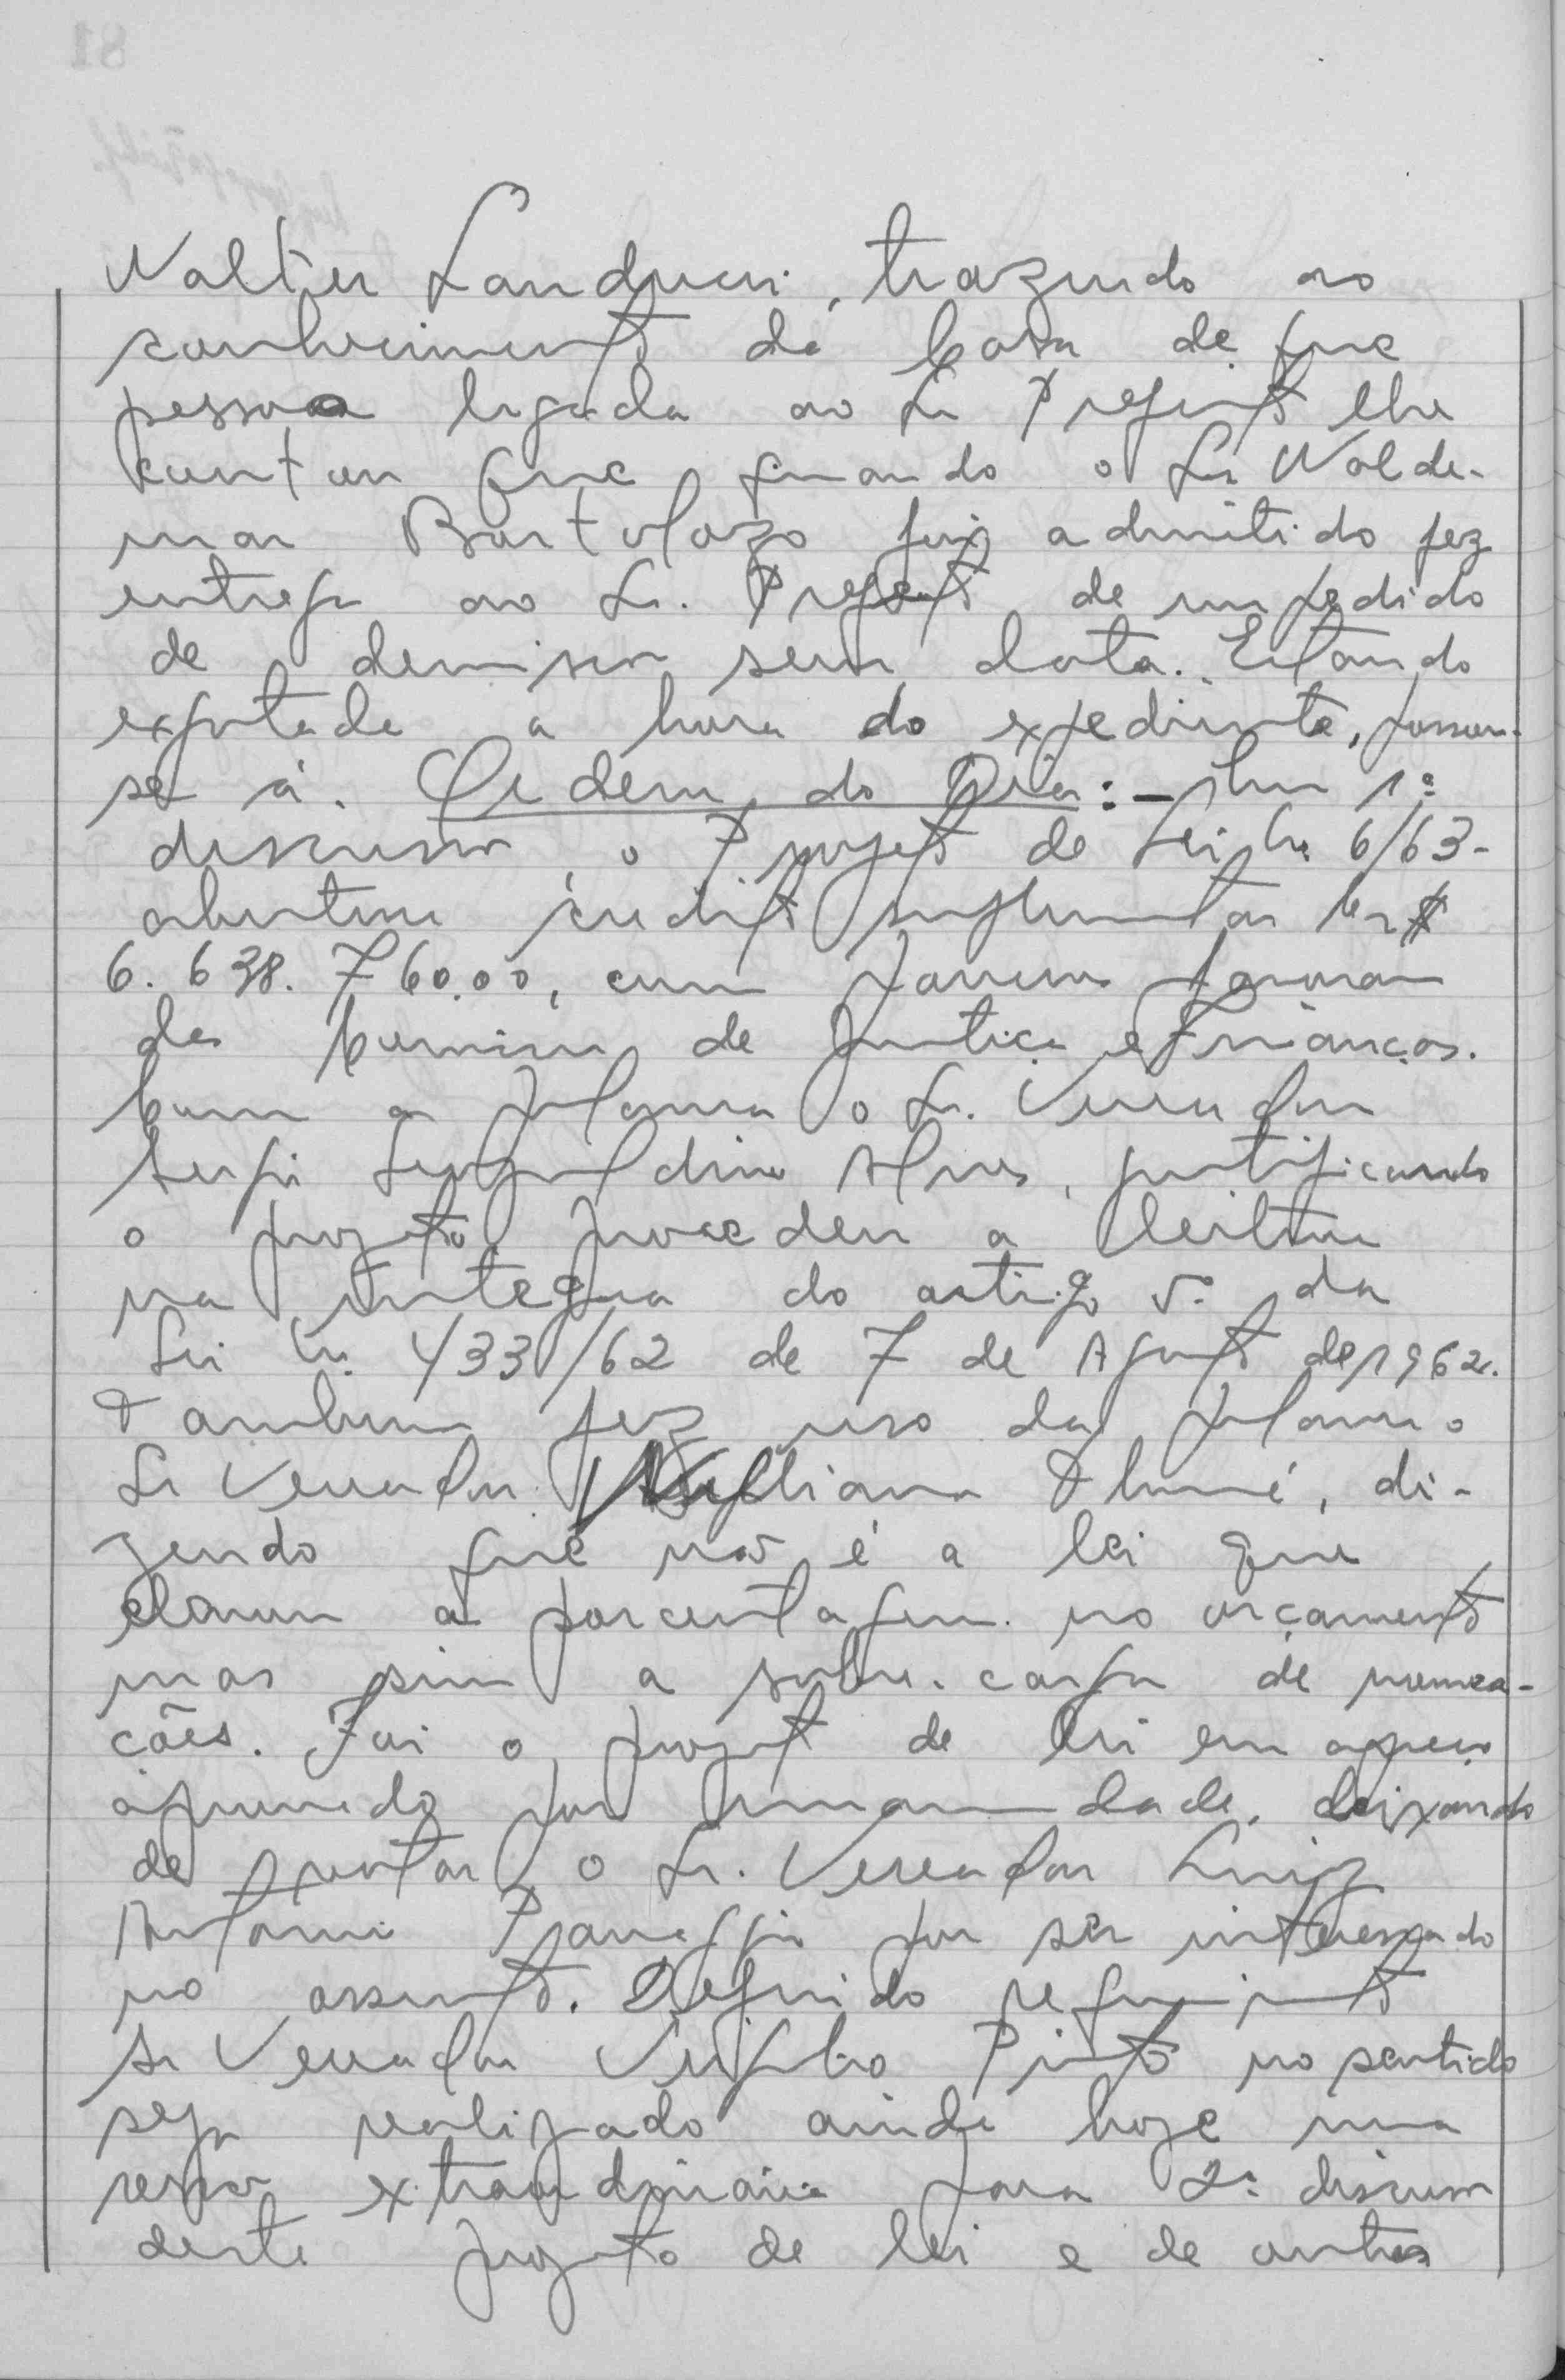 Walter Landucci, trazendo ao
conhecimento da Casa de que
pessoa ligada ao Sr Prefeito lhe
contou que quando o Sr Walde-
mar Bortolazo foi admitido fez
entrega ao Sr. Prefeito de um pedido
de demissão sem data. Estando
exgotada a hora do expediente, passou-
se á. Ordem do Dia: - Em 1ª
discussão, o Projeto de Lei Nº 6/63-
abertura credito suplementar Cr$
6.638.760,00, com parecer favoravel
da Comissão de Justiça e Finanças.
Com a palavra o Sr. Vereador
Sergio Leopoldino Alves, justificando
o projeto, procedeu a leitura
na integra do artigo 5º da
Lei Nº 433/62 de 7 de Agosto de 1962.
Tambem fez uso da palavra o
Sr Vereador Thomé, di-
zendo que não é a lei que
elevou a porcentagem no orçamento
mas sim a sobre-carga de nomea-
ções. Foi o projeto de lei em apreço
aprovado por unanimidade, deixando
de votar o Sr. Vereador Luiz
Antonio por ser interessado
no assunto. Deferido requerimento
Sr Vereador Virgilio Pinto no sentido
seja realizado ainda hoje uma
sessão extraordinária para 2ª discussão
deste projeto de lei e de outros